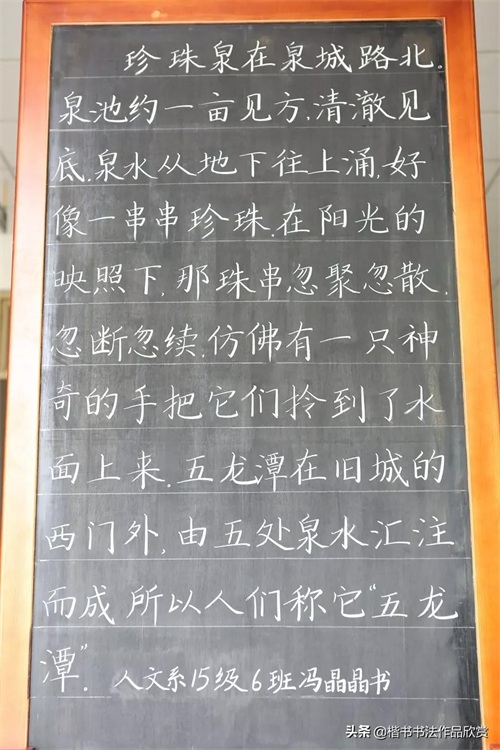 珍珠泉在泉城路北.
泉池约一亩见方.清澈见
底.泉水从地下往上涌,好
像一串串珍珠.在阳光的
映照下,那珠串忽聚忽散.
忽断忽续.仿佛有一只神
奇的手把它们拎到了水
面上来.五龙潭在旧城的
西门外,由五处泉水汇注
而成 所以人们称它“五龙
潭”. 人文系15级6班冯晶晶书
头条@楷书书法作品欣赏